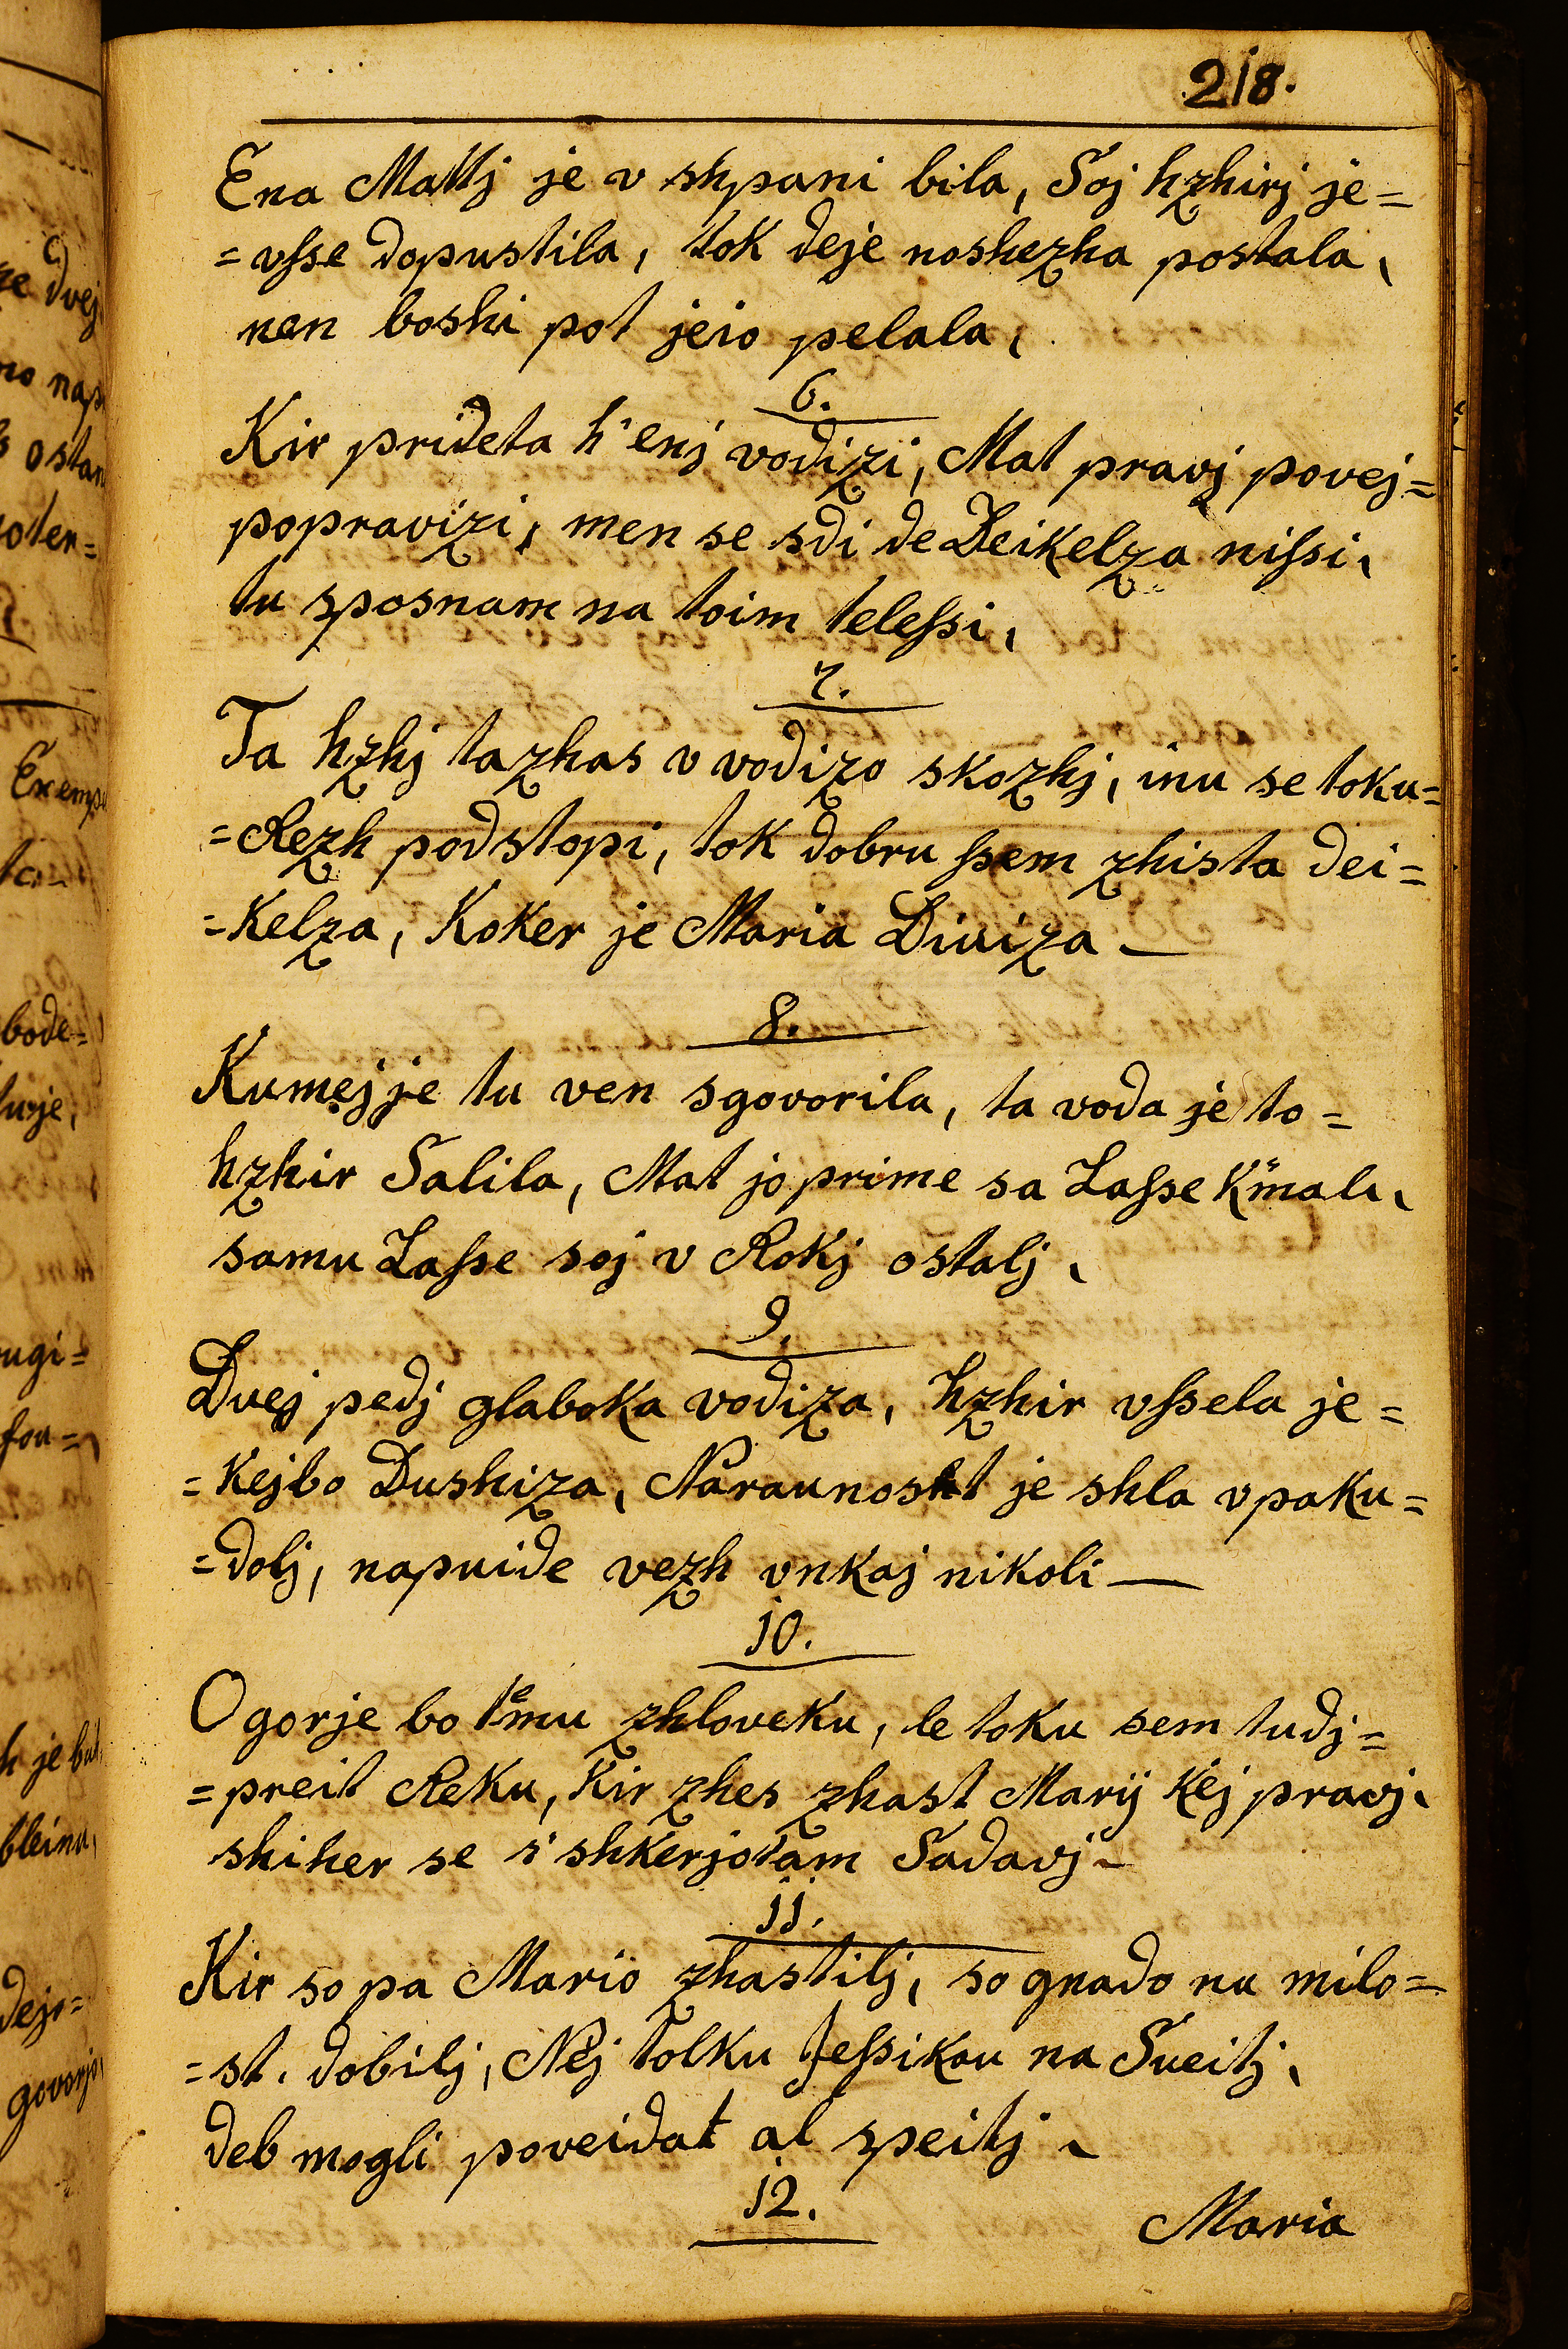 218.
Ena Mattj je v shpani bila, Soj hzhirj je=
=vsse dopustila, tok deje noshezha postala,
nen boshi pot jeio pelala,
6.
Kir prideta h'enj vodizi, Mat pravj povej=
popravizi, men se sdi de Deikelza nissi,
tu sposnam na toim telessi,
7.
Ta hzhj tazhas v vodizo skozhj, inu se toku=
=Rezh podstopi, tok dobru ssem zhista dei=
=Kelza, Koker je Maria Diviza—
8.
Kumej je tu ven sgovorila, ta voda je to=
hzhir Salila, Mat jo prime sa Lasse K'mali,
samu Lasse soj v Rokj ostalj,
9.
Dvej pedj glaboka vodiza, hzhir vssela je=
=Kejbo Dushiza, Naraunosht je shla vpaku=
=dolj, napuide vezh vnkaj nikoli—
10.
O gorje bo temu zhloveku, le toku sem tudj=
=preit Reku, Kir zhes zhast Marij Kej pravj,
shiher se s'shkerjotam Sadavj—
11.
Kir so pa Mario zhastilj, so gnado nu milo=
=st. dobilj, Nej tolku Jessikou na Sveitj,
deb mogli poveidat al speitj,
12.
Maria
ne dvej
mo nap
ostan
oter=
Exemp
ta
bode=
ugi=
fou=
h je bil
bleinu,
dejo=
govorjo,